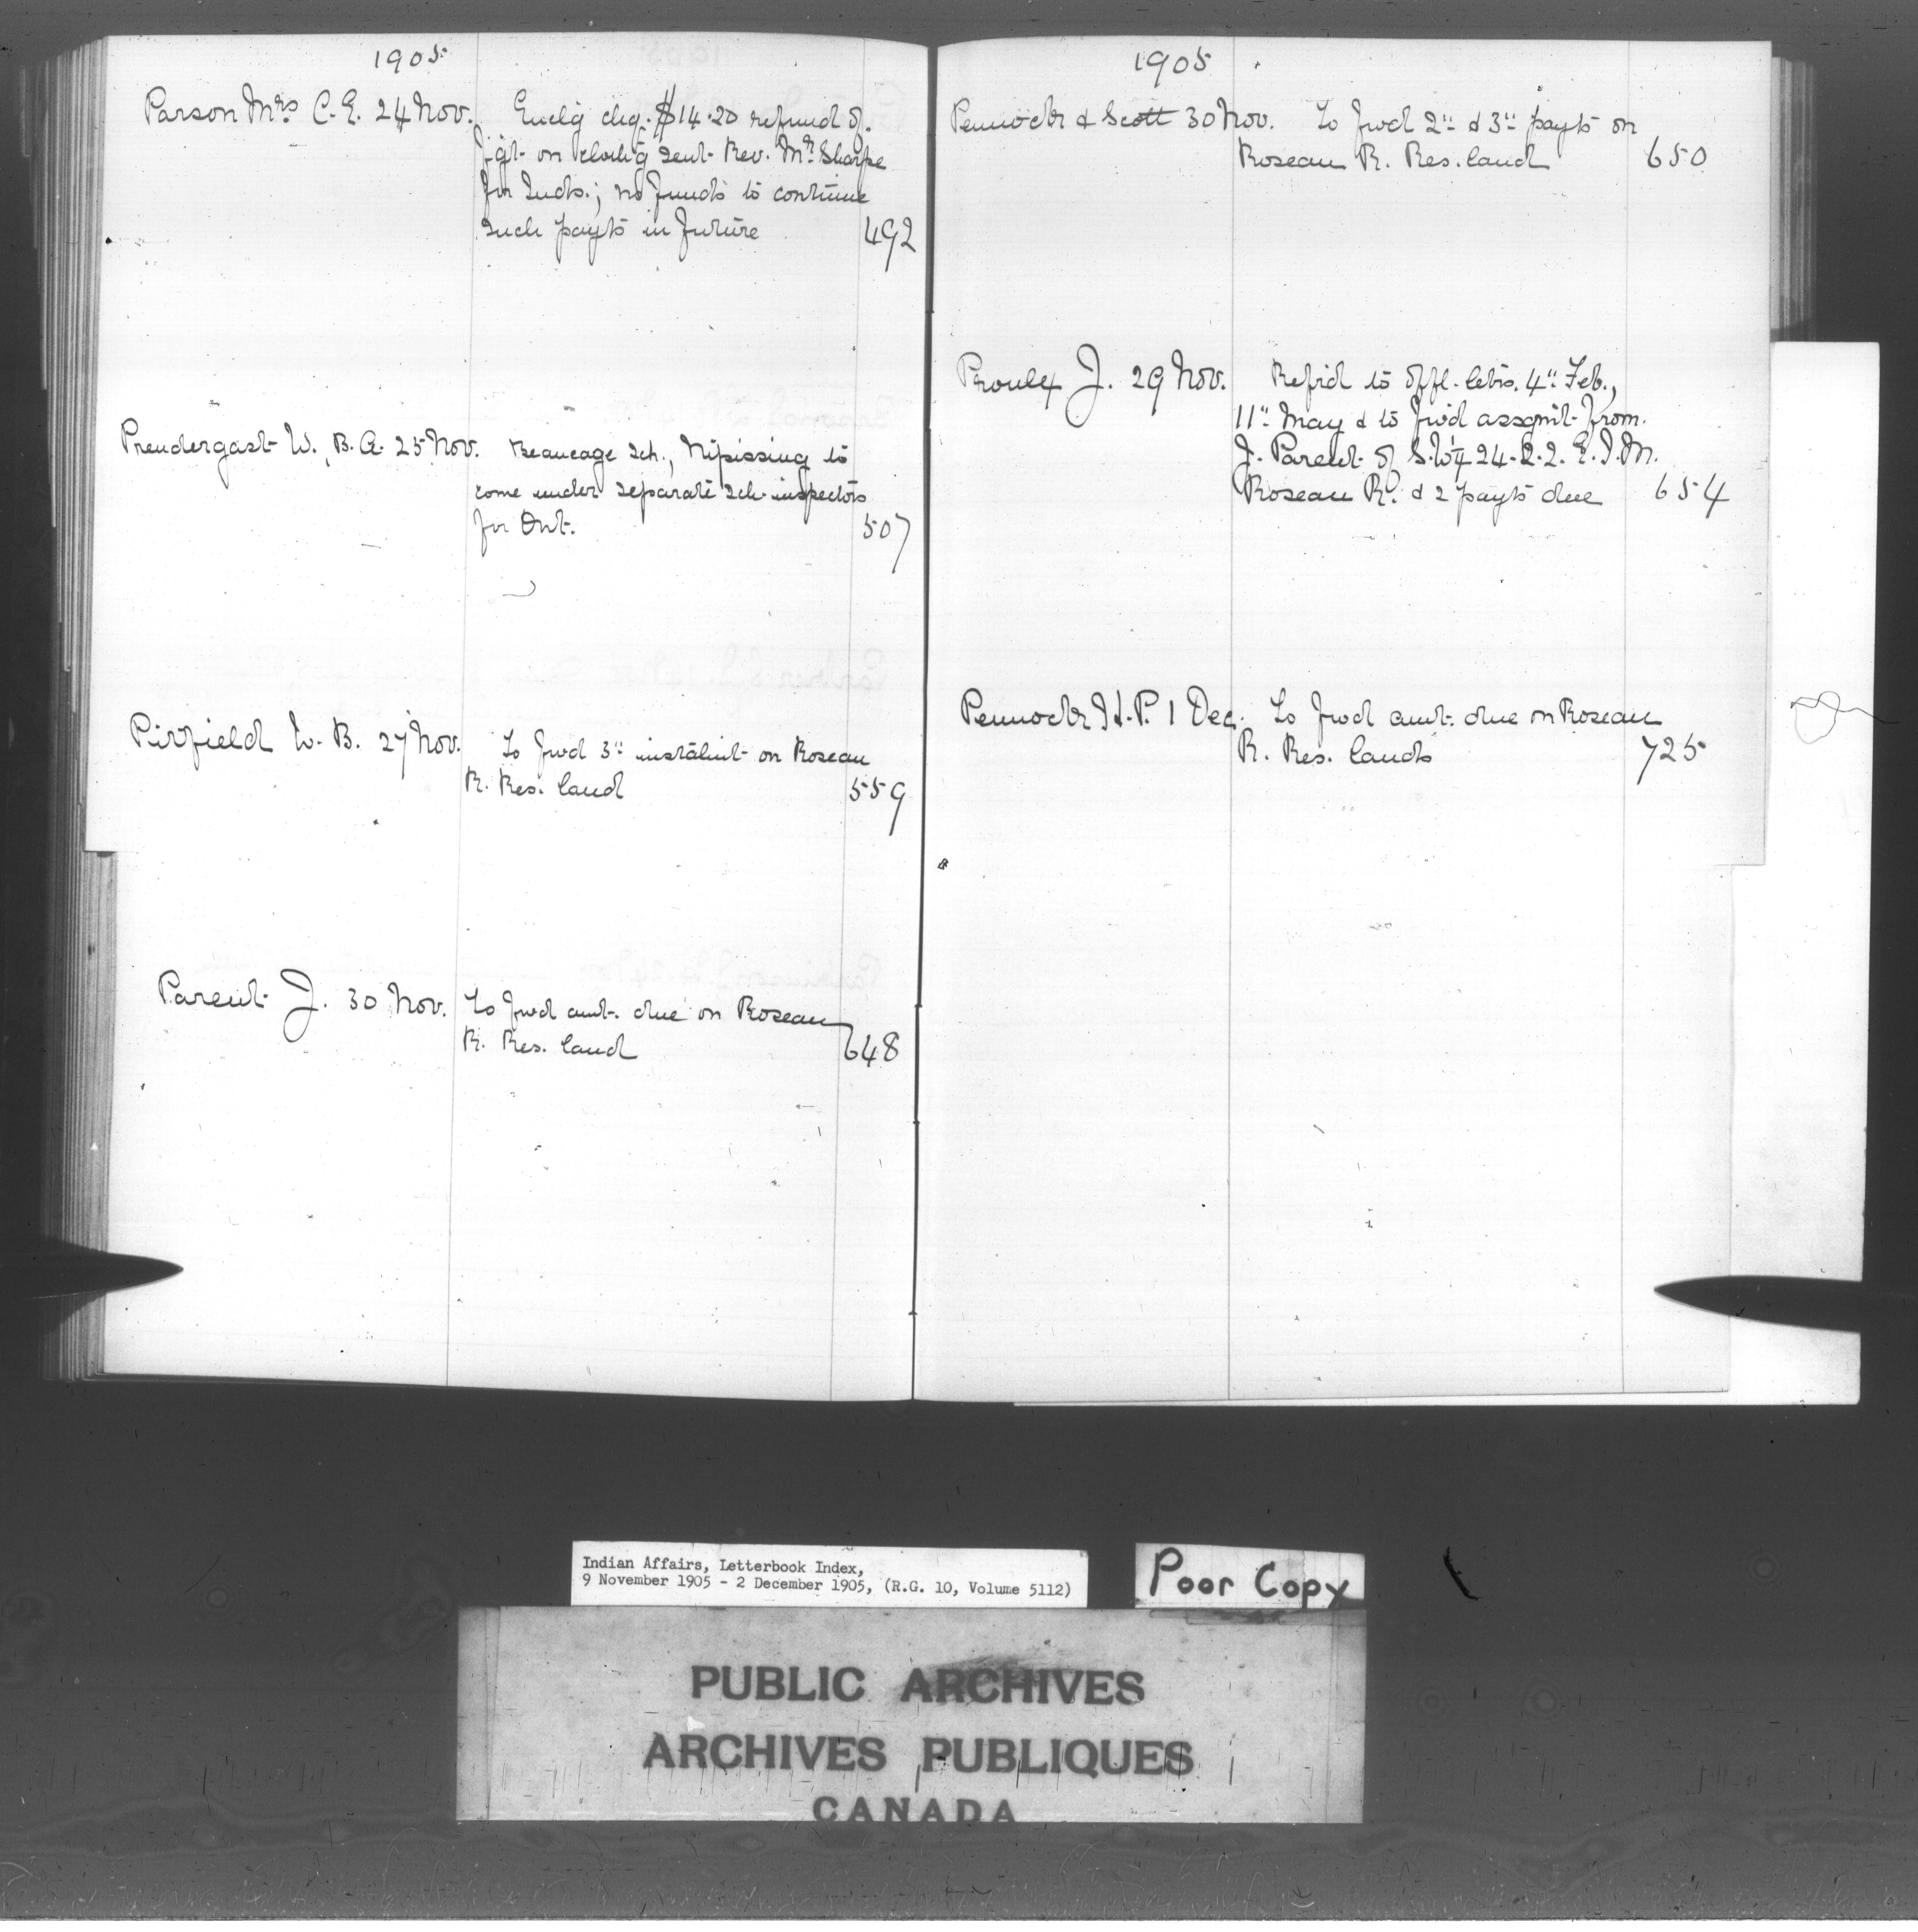 1905
Parson Mrs C. E. 24 Nov. Enclg chq. $14.20 refund of
fgt. on clothg sent Rev. Mr Sharpe
for Inds.; no funds to continue
such payts in future 492
Prendergast W. B. A. 25 Nov. Beaucage Sch., Nipissing to
come under separate sch. inspectors
for Ont. 507
Pirfield W. B. 27 Nov. To fwd 3" instalmt on Roseau
R. Res. land 559
Parent J. 30 Nov. To fwd amt. due on Roseau
R. Res. land 648
1905
Pennock & Scott 30 Nov. To fwd 2" & 3" payts on
Roseau R. Res. land 650
Proulx J. 29 Nov. Refrd to offl. letrs. 4" Feb.,
11" May & to fwd assgmt from
J. Parent of S.W¼ 24-2-2. E. I. M.
Roseau R. & 2 payts due 654
Pennock H. P. 1 Dec. To fwd amt. due on Roseau
R. Res. lands 725
Indian Affairs, Letterbook Index,
9 November 1905 - 2 December 1905, (R.G. 10, Volume 5112)
Poor Copy
PUBLIC ARCHIVES
ARCHIVES PUBLIQUES
CANADA